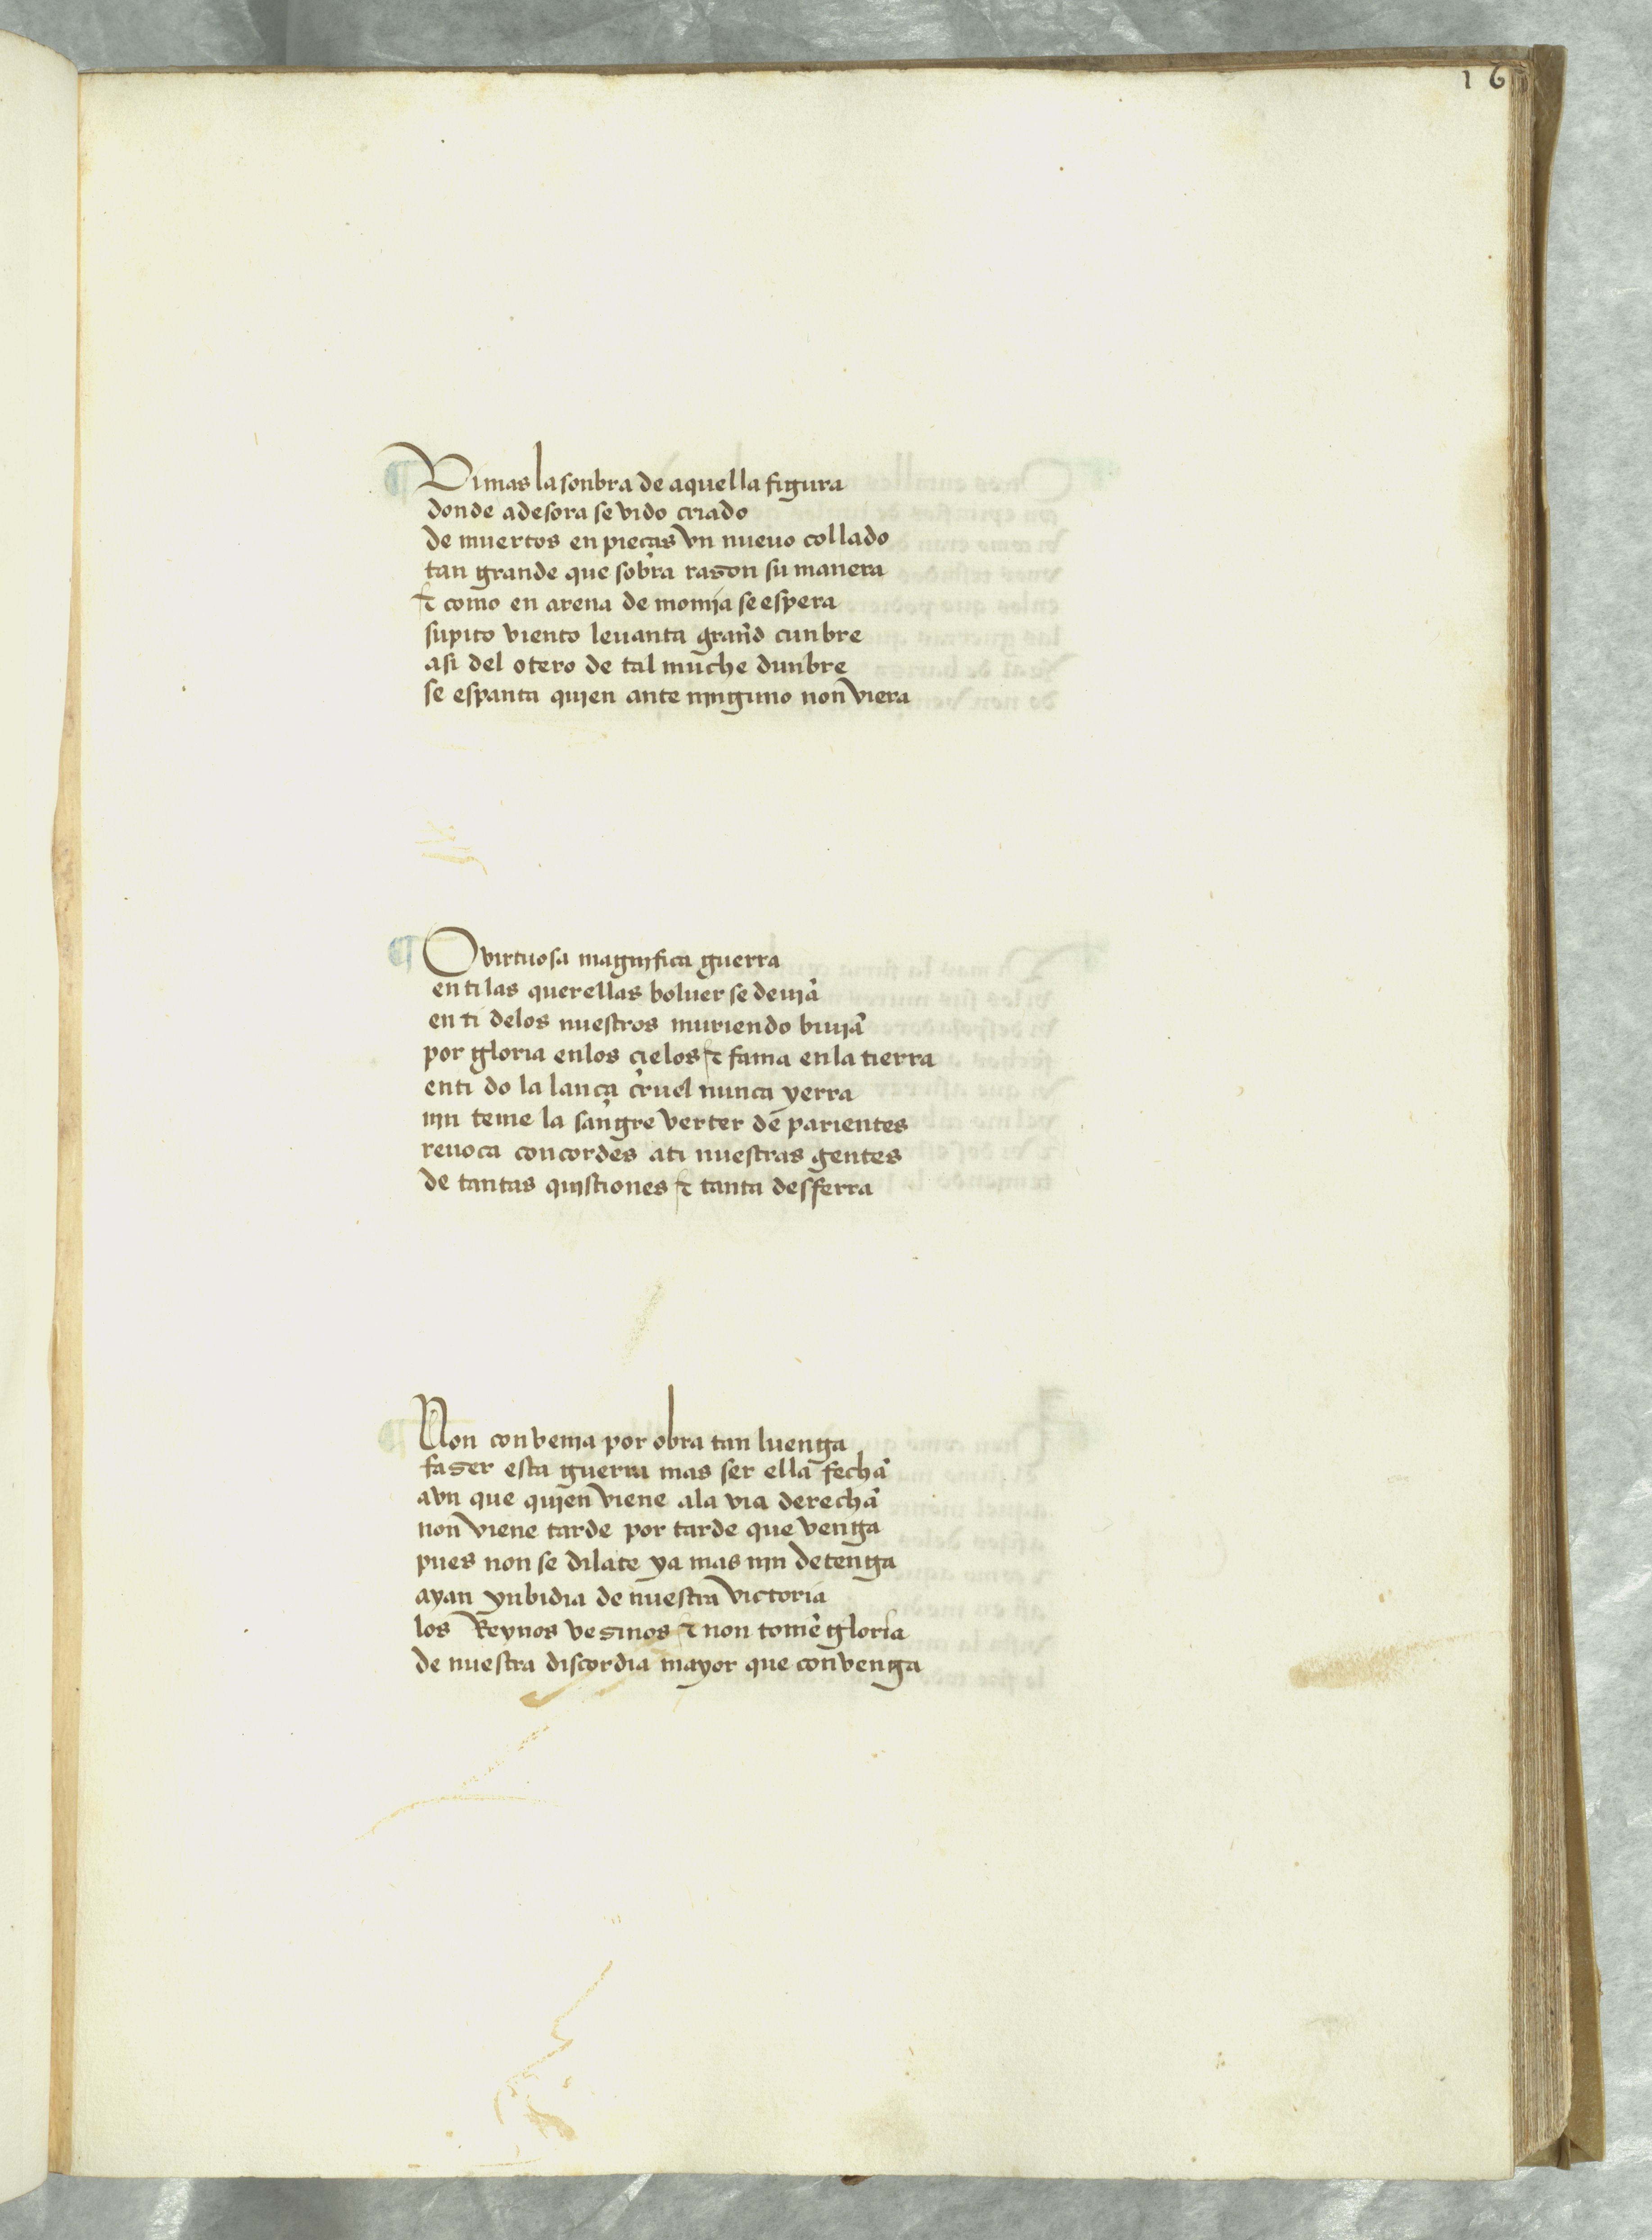 16
¶ Vi mas la sonbra de aquella figura
donde adesora se vido criado
de muertos en pieças vn nueuo collado
tan grande que sobra rason su manera
⁊ como en arena de momja se espera
supito viento leuanta grand cunbre
asi del otero de tal muche dunbre
se espanta qujen ante njnguno non viera
¶ O virtuosa magnjfica guerra
en ti las querellas boluer se deujã
en ti delos nuestros muriendo biujã
por gloria enlos çielos ⁊ fama en la tierra
enti do la lança cruel nunca yerra
njn teme la sangre verter de parientes
reuoca concordes ati nuestras gentes
de tantas qujstiones ⁊ tanta desferra
¶ Non convenia por obra tan luenga
faser esta guerra mas ser ella fecha
avn que qujen viene ala via derecha
non viene tarde por tarde que venga
pues non se dilate ya mas njn detenga
ayan ynbidia de nuestra victoria
los Reynos vesinos ⁊ non tomẽ gloria
de nuestra discordia mayor que convenga